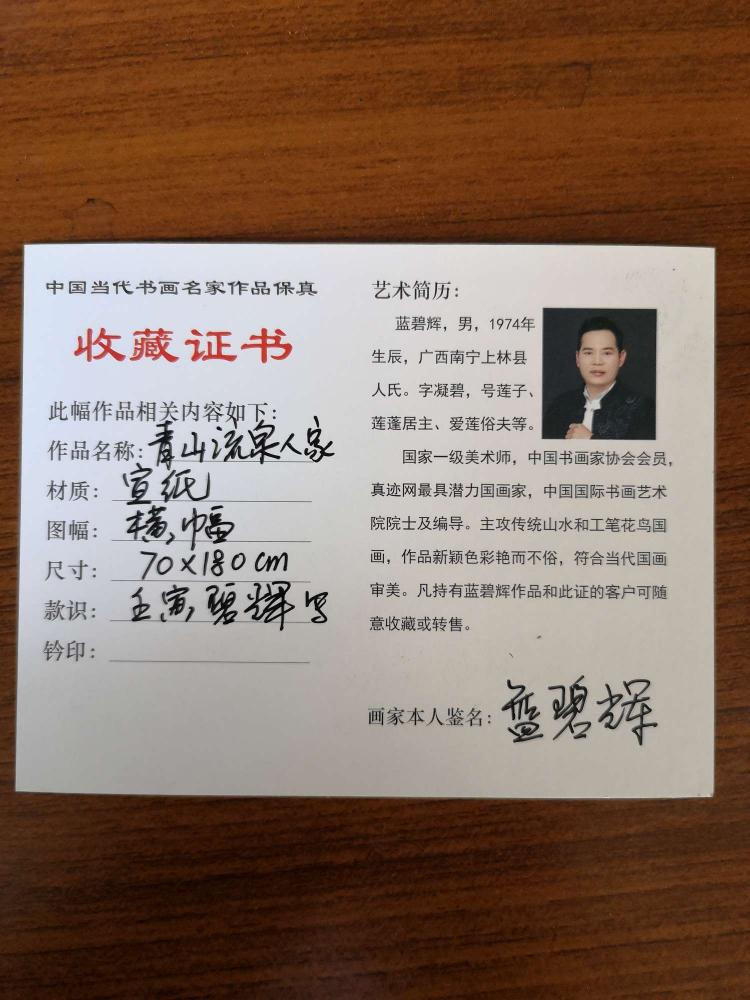 中国当代书画名家作品保真
收藏证书
此幅作品相关内容如下：
作品名称：青山流泉人家
材质：宣纸
图幅：横幅
尺寸：70×180cm
款识：壬寅碧辉写
钤印：
艺术简历：
蓝碧辉，男，1974年
生辰，广西南宁上林县
人氏。字凝碧，号莲子、
莲蓬居主、爱莲俗夫等。
国家一级美术师，中国书画家协会会员，
真迹网最具潜力国画家，中国国际书画艺术
院院士及编导。主攻传统山水和工笔花鸟国
画，作品新颖色彩艳而不俗，符合当代国画
审美。凡持有蓝碧辉作品和此证的客户可随
意收藏或转售。
画家本人鉴名：蓝碧辉